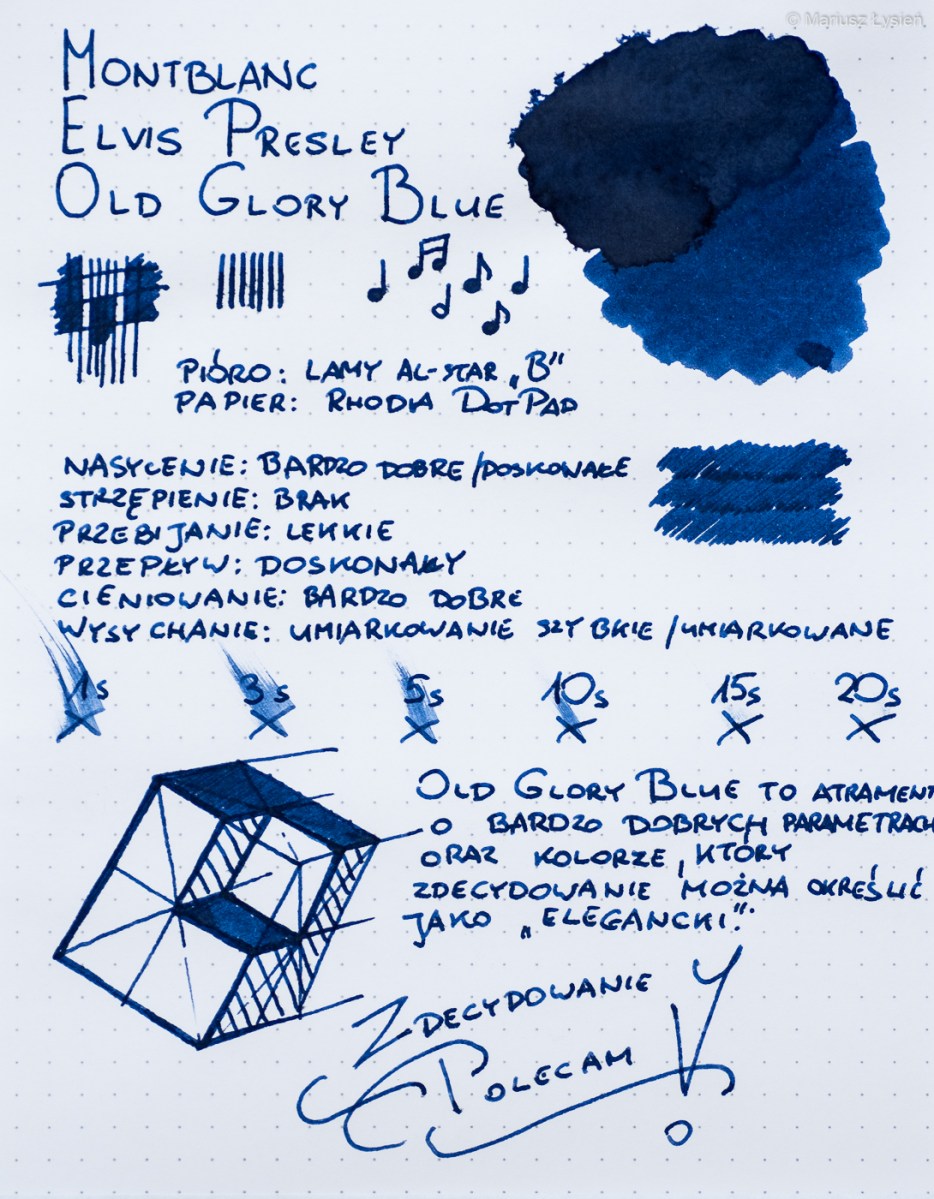 © Mariusz Łysień
MONTBLANC
ELVIS PRESLEY
OLD GLORY BLUE
PIÓRO: LAMY AL-STAR „B”
PAPIER: RHODIA DOTPAD
NASYCENIE: BARDZO DOBRE/DOSKONAŁE
STRZĘPIENIE: BRAK
PRZEBIJANIE: LEKKIE
PRZEPŁYW: DOSKONAŁY
CIENIOWANIE: BARDZO DOBRE
WYSYCHANIE: UMIARKOWANIE SZYBKIE/UMIARKOWANE
1s 3s 5s 10s 15s 20s
OLD GLORY BLUE TO ATRAMENT
O BARDZO DOBRYCH PARAMETRACH
ORAZ KOLORZE, KTÓRY
ZDECYDOWANIE MOŻNA OKREŚLIĆ
JAKO „ELEGANCKI”.
ZDECYDOWANIE
POLECAM!